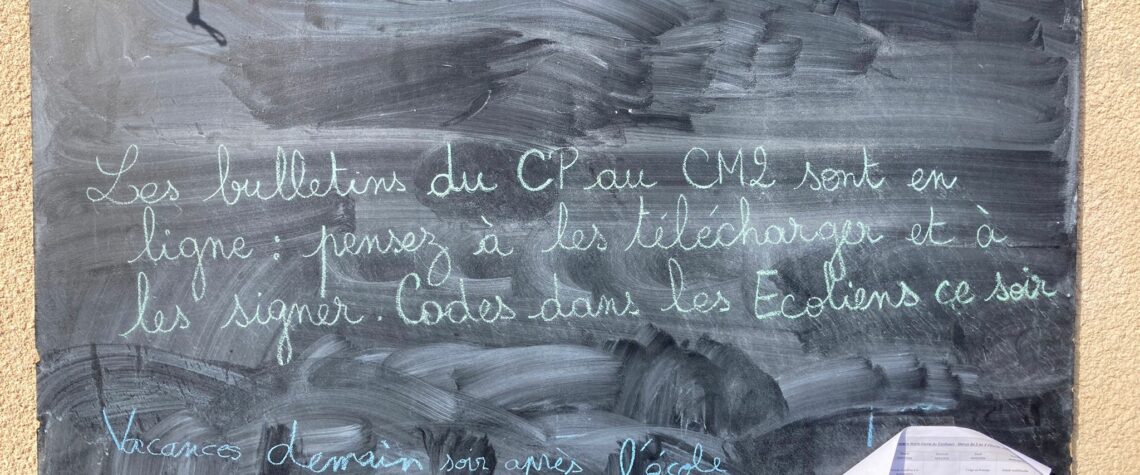 Les bulletins du CP au CM2 sont en
ligne : pensez à les télécharger et à
les signer. Codes dans les Ecoliens ce soir.
Vacances demain soir après l'école